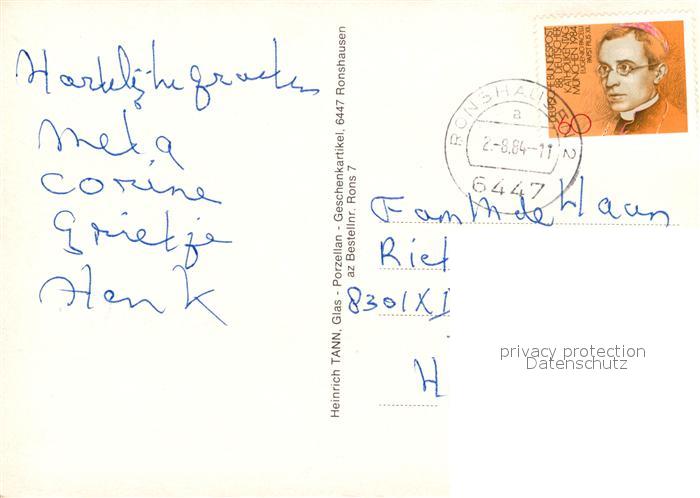 Hartelijke groeten
Meta
Corine
Grietje
Henk
Heinrich TANN, Glas - Porzellan - Geschenkartikel, 6447 Ronshausen
az Bestellnr. Rons 7
DEUTSCHE BUNDESPOST
88. DEUTSCHER
KATHOLIKENTAG
MÜNCHEN 1984
EUGENIO PACELLI
PAPST PIUS XII.
60
RONSHAUSEN 2
a
2.-8.84-11
6447
Fam de Haan
Riet
8301XD
H
privacy protection
Datenschutz